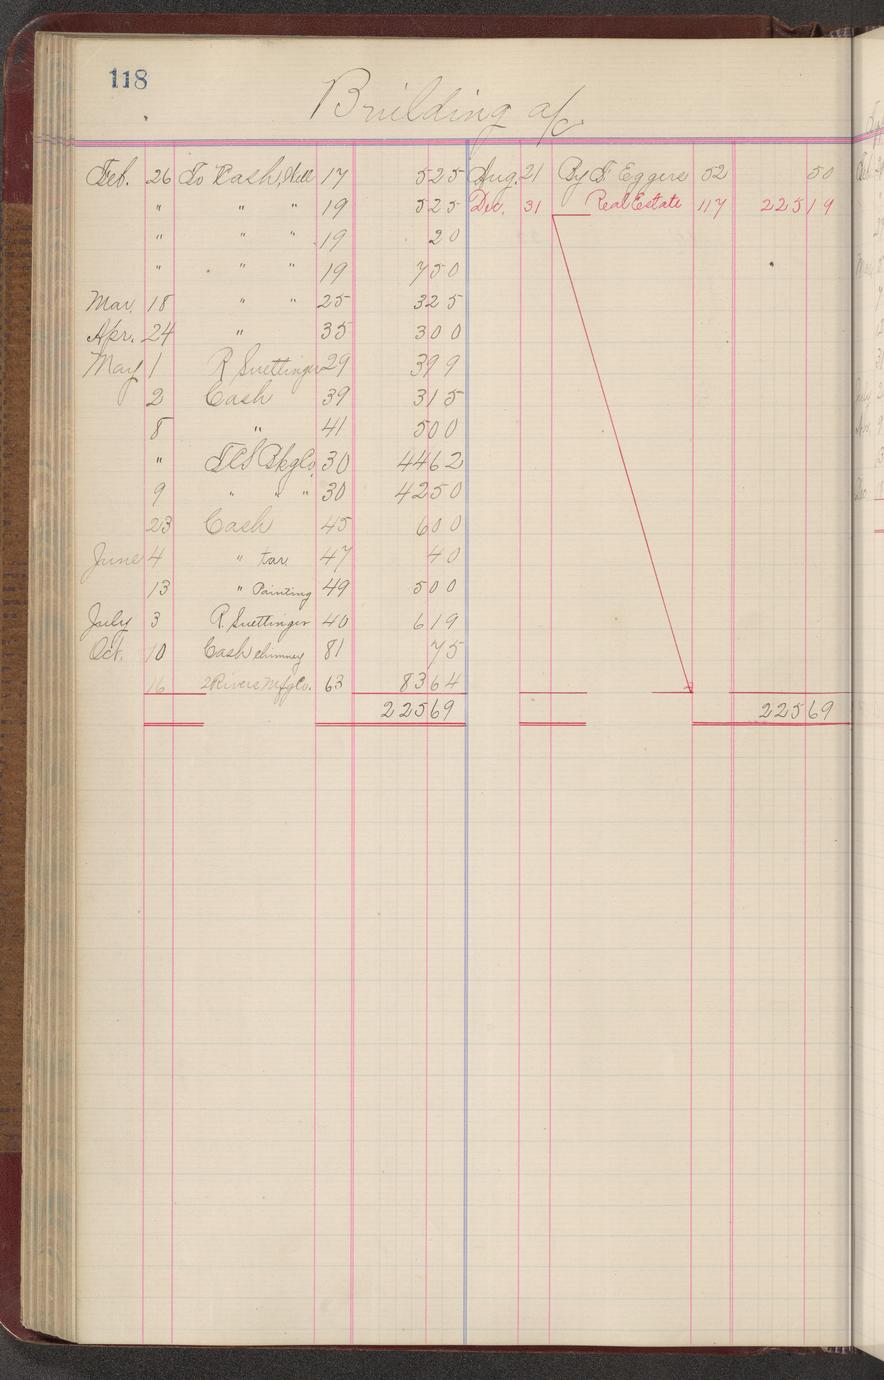 118
Building a/c
Feb. 26 To Cash, 17 525 Aug. 21 By F Eggers 52 50
" " " 19 525 Dec. 31 Real Estate 117 22519
" " " 19 20
" " " 19 750
Mar. 18 " " 25 325
Apr. 24 " 35 300
May 1 R Suettinger 29 399
2 Cash 39 315
8 " 41 500
" Bkg Co 30 4462
9 " " " 30 4250
23 Cash 45 600
June 4 " tar 47 40
13 " Painting 49 500
July 3 R. Suettinger 40 619
Oct. 10 Cash chimney 81 75
16 2 Rivers Mfg Co. 63 8364
22569 22569